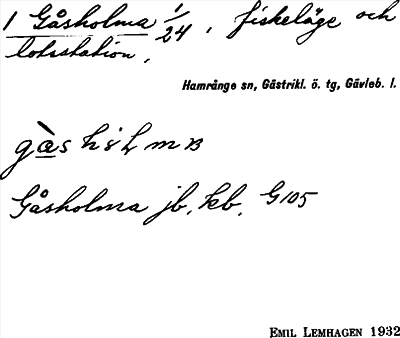 1 Gåsholma 1/24, fiskeläge och
lotsstation,
Hamrånge sn, Gästrikl. ö. tg, Gävleb. l.
Gåsholma jb, kb. G105
EMIL LEMHAGEN 1932